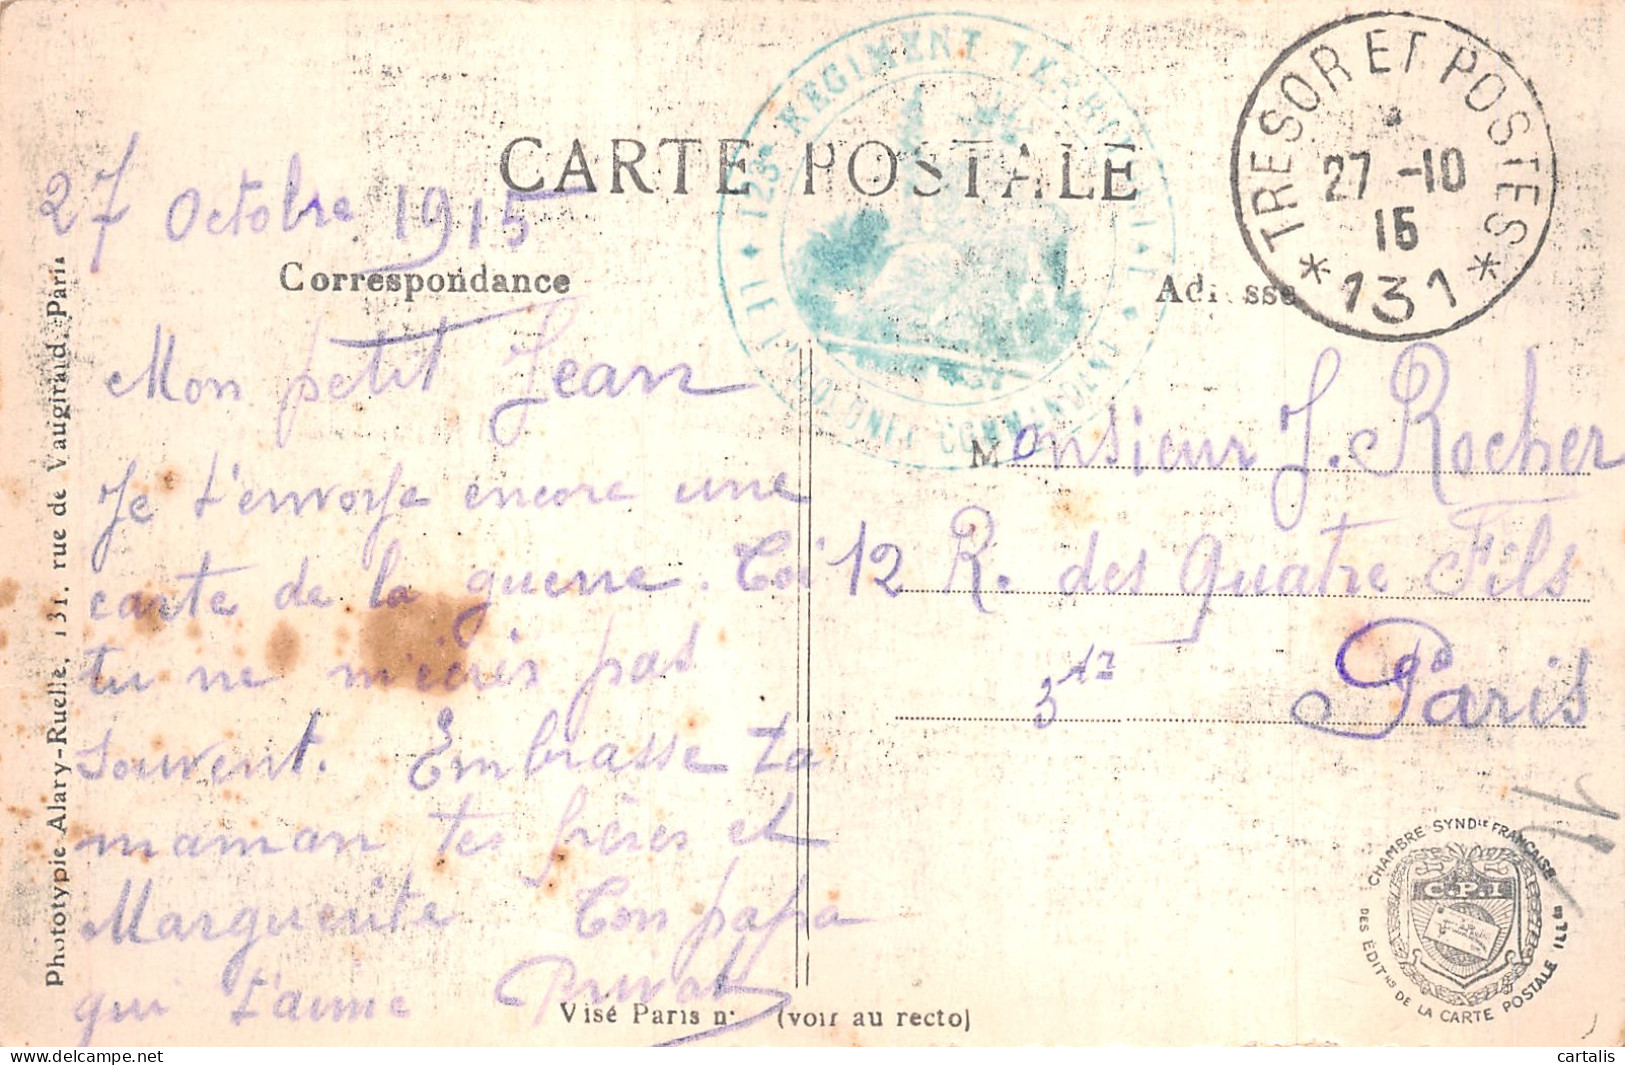 CARTE POSTALE
123e REGIMENT TERRITORIAL
LE LT COLONEL COMMANDANT
TRESOR ET POSTES
27 -10
15
* 131 *
27 Octobre 1915
Correspondance
Adresse
Mon petit Jean
Je t'envoye encore une
carte de la guerre. Toi
tu ne m'écris pas
souvent. Embrasse ta
maman tes frères et
Marguerite Ton papa
qui t'aime Privat
Monsieur J. Rocher
12 R. des Quatre Fils
Paris
Phototypie Alary-Ruelle, 131, rue de Vaugirard, Paris
Visé Paris n° (voir au recto)
CHAMBRE SYNDle FRANÇAISE
C.P.I
DES ÉDITrs DE LA CARTE POSTALE ILLée
cartalis